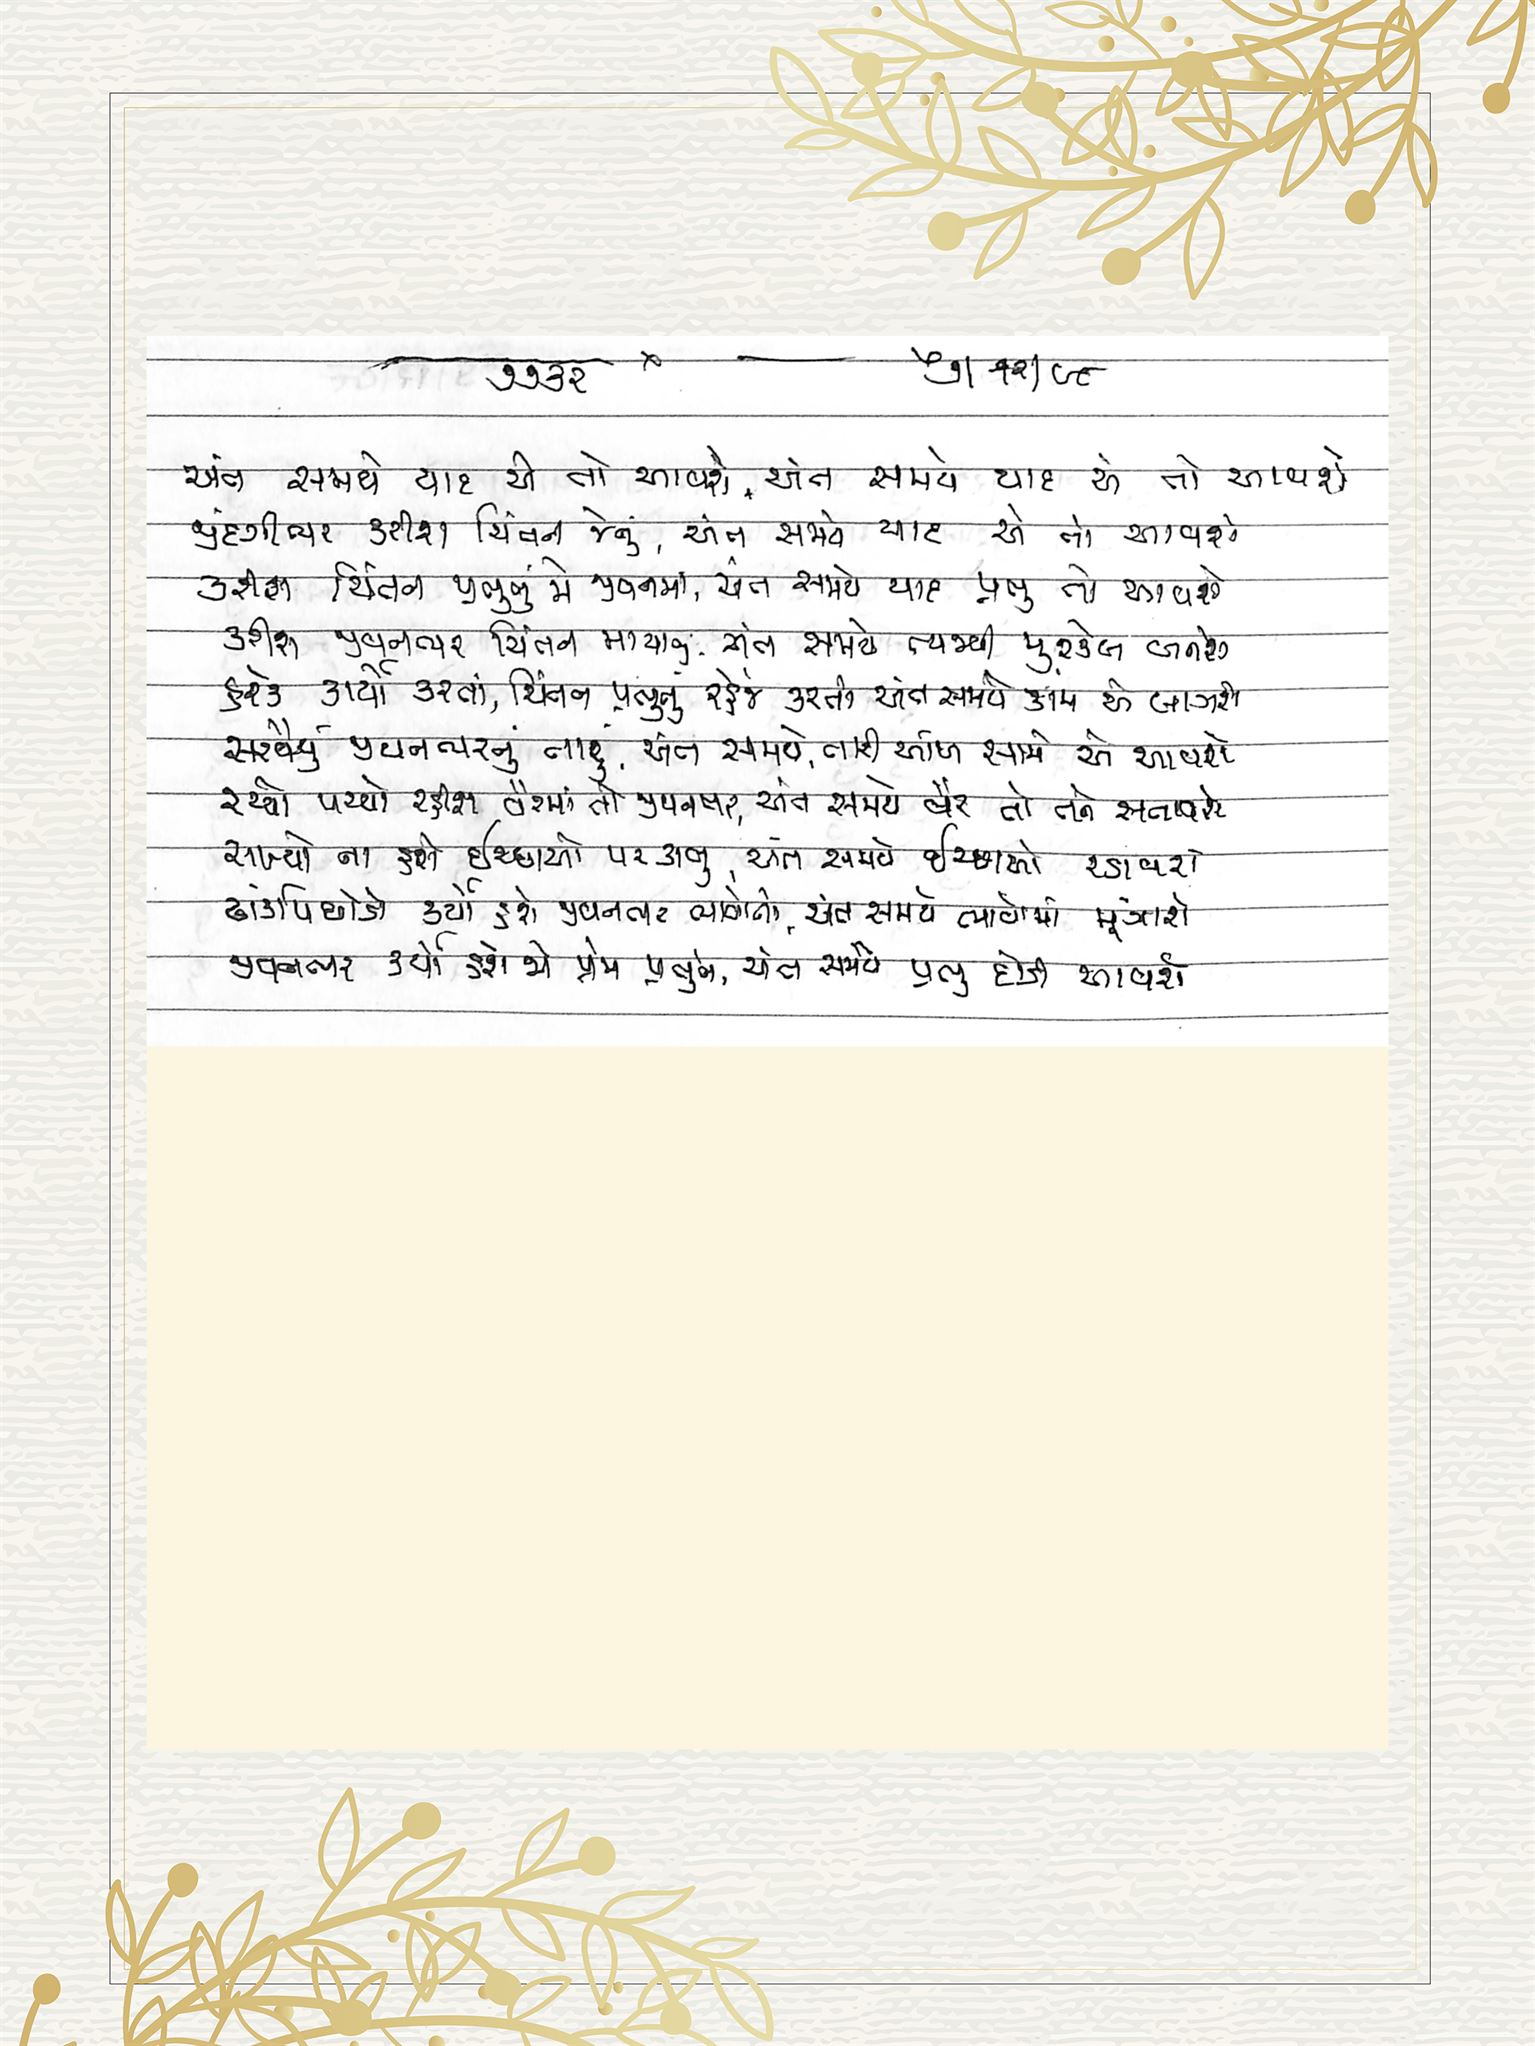 ૧૧૩૨
અંત સમયે યાદ એ તો આવશે, અંત સમયે યાદ એ તો આવશે
જીંદગીભર કરીશ ચિંતન જેનું, અંત સમયે યાદ એ તો આવશે
કરીશ ચિંતન પ્રભુનું જે જીવનમાં, અંત સમયે યાદ પ્રભુ તો આવશે
કરીશ જીવનભર ચિંતન માયાનું, અંત સમયે ત્યાંથી મુશ્કેલ બનશે
હરેક કાર્યો કરતાં, ચિંતન પ્રભુનું રહેજે કરતો અંત સમયે કામ એ લાગશે
સરવૈયું જીવનભરનું તારૂં, અંત સમયે, તારી આંખ સામે એ આવશે
રચ્યો પચ્યો રહીશ વૈરમાં તો જીવનભર, અંત સમયે વૈર તો તને સતાવશે
રાખ્યો ના હશે ઈચ્છાઓ પર કાબુ, અંત સમયે ઈચ્છાઓ રડાવશે
ઢાંકપિછોડો કર્યો હશે જીવનભર ભાવોનો, અંત સમયે ભાવોમાં મૂંઝાશે
જીવનભર કર્યો હશે જો પ્રેમ પ્રભુને, અંત સમયે પ્રભુ દોડી આવશે